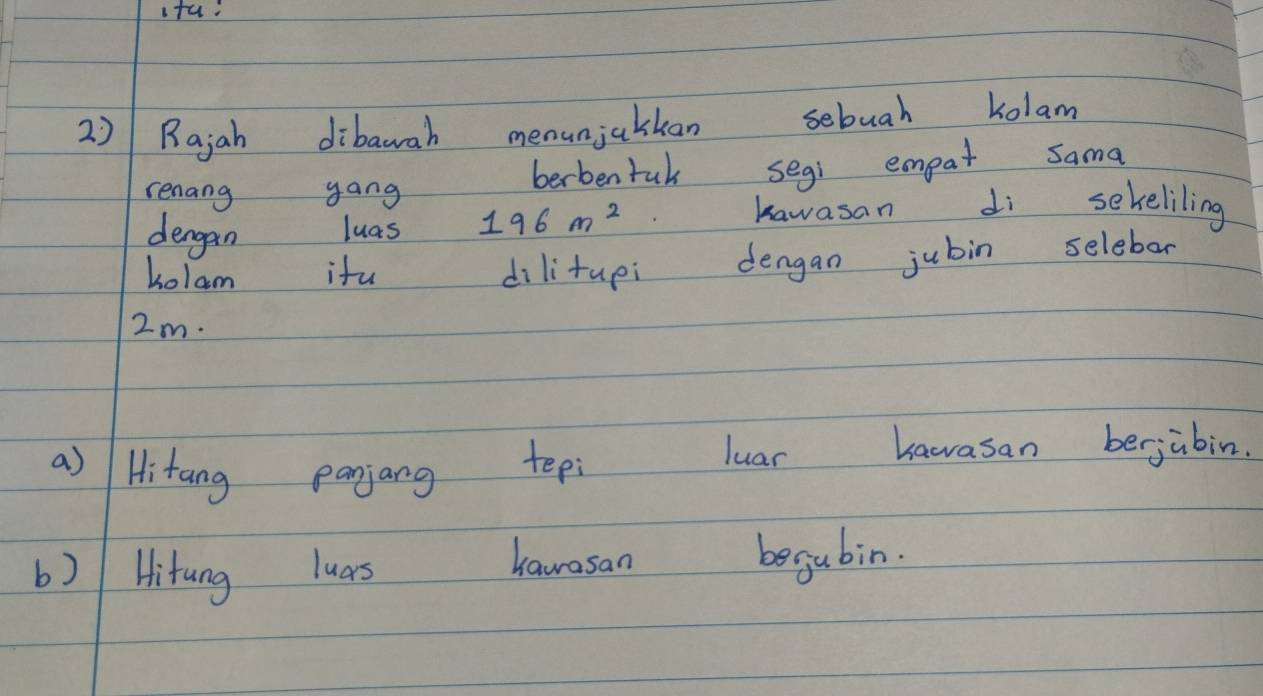 itu.
2.) Rajah dibawah menunjukkan sebuah kolam
renang yang berbentuk segi empat sama
dengan luas 196 m². Kawasan di sekeliling
kolam itu dilitupi dengan jubin selebar
2m.
a) Hitung panjang tepi luar kawasan berjubin.
b) Hitung luas kawasan berjubin.